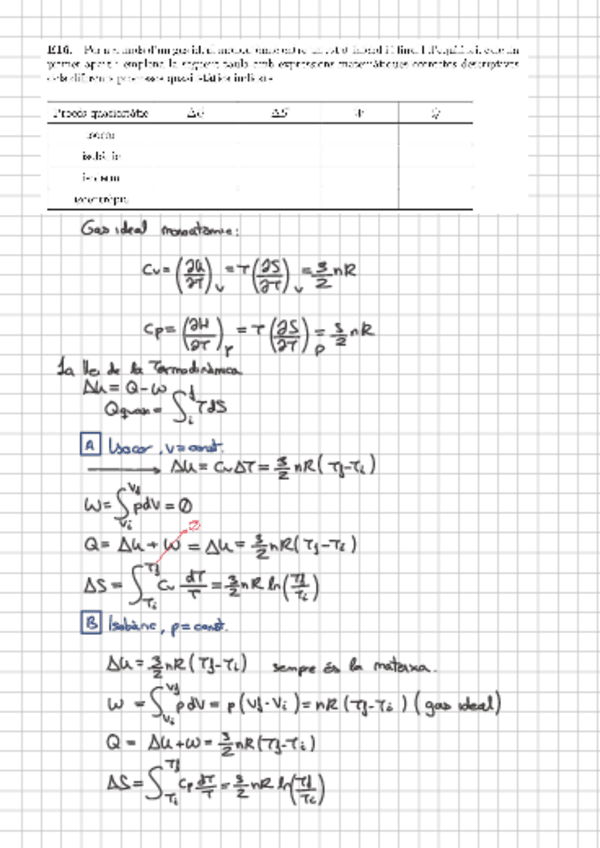 E16. Per a n mols d'un gas ideal
primer apartat emplena la següent taula amb expressions matemàtiques correctes descriptives
dels diferents processos quasiestàtics indicats
Procés quasiestàtic ΔU ΔS W Q
isocor
isobàric
isoterm
isentròpic
Gas ideal monoatòmic:
Cv = (∂U/∂T)_v = T(∂S/∂T)_v = 3/2 nR
Cp = (∂H/∂T)_p = T(∂S/∂T)_p = 5/2 nR
1a llei de la Termodinàmica
ΔU = Q - W
Qquas = ∫_i^f TdS
A Isocor, v = const.
→ ΔU = CvΔT = 3/2 nR (Tf - Ti)
W = ∫_Vi^Vf pdV = 0
Q = ΔU + W = ΔU = 3/2 nR (Tf - Ti)
0
ΔS = ∫_Ti^Tf Cv dT/T = 3/2 nR ln(Tf/Ti)
B Isobàric, p = const.
ΔU = 3/2 nR (Tf - Ti) sempre és la mateixa.
W = ∫_Vi^Vf pdV = p (Vf - Vi) = nR (Tf - Ti) (gas ideal)
Q = ΔU + W = 5/2 nR (Tf - Ti)
ΔS = ∫_Ti^Tf Cp dT/T = 5/2 nR ln(Tf/Ti)